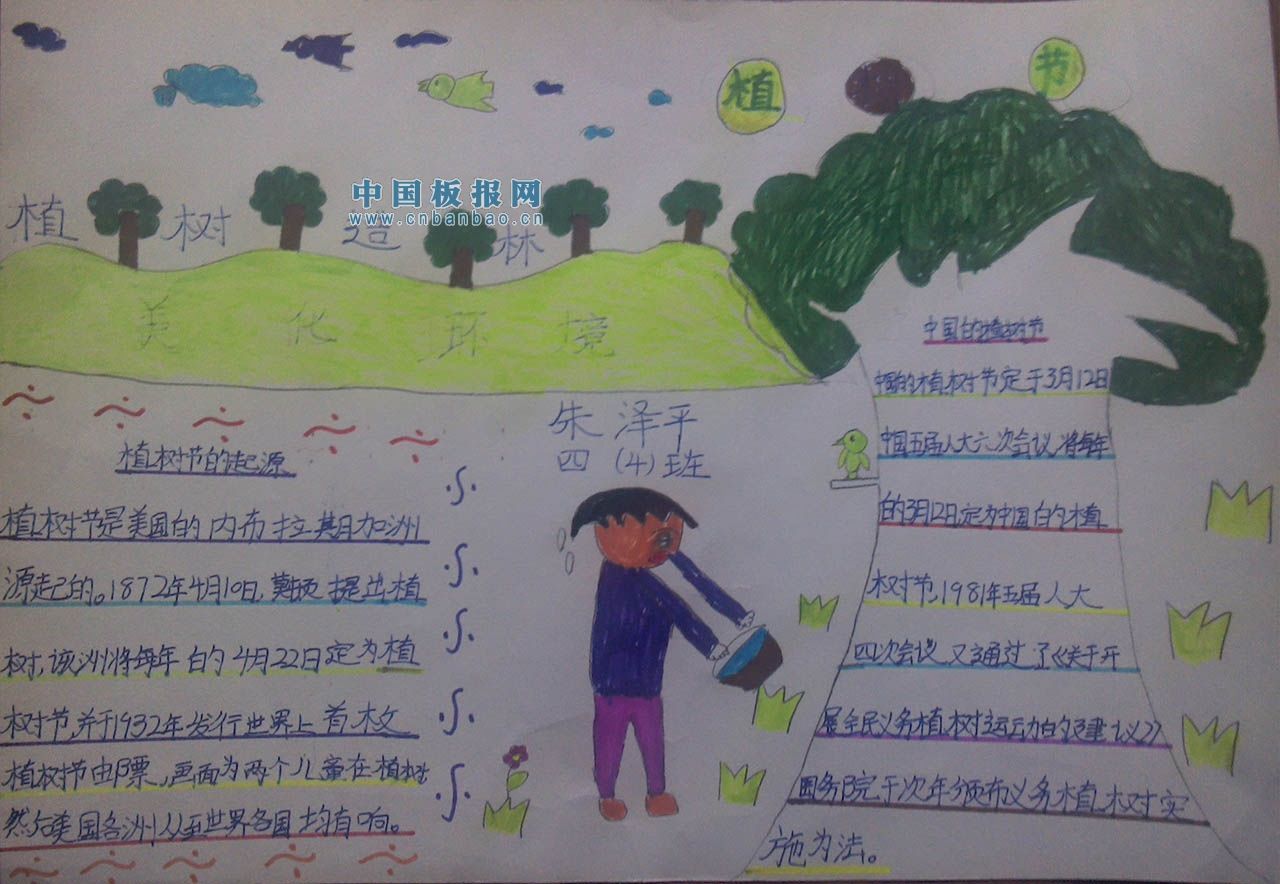 植 节
中国板报网
www.cnbanbao.cn
植 树 造 林
美 化 环 境
朱 泽平
四 (4) 班
植树节的起源
植树节是美国的内布拉期加洲
源起已的。1872年4月10日, 提出植
树,该洲将每年的4月22日定为植
树节,并于1932年发行世界上首枚
植树节邮票,画面为两个儿童在植树
然后美国各洲从至世界各国均有响。
中国的植树节
中国的植树节定于3月12日
中国五届人大六次会议,将每年
的3月12日,定为中国的植
树节,1981年五届人大
四次会议,又通过了《关于开
展全民义务植树运动的建议》
国务院于次年颁布义务植树实
施为法。